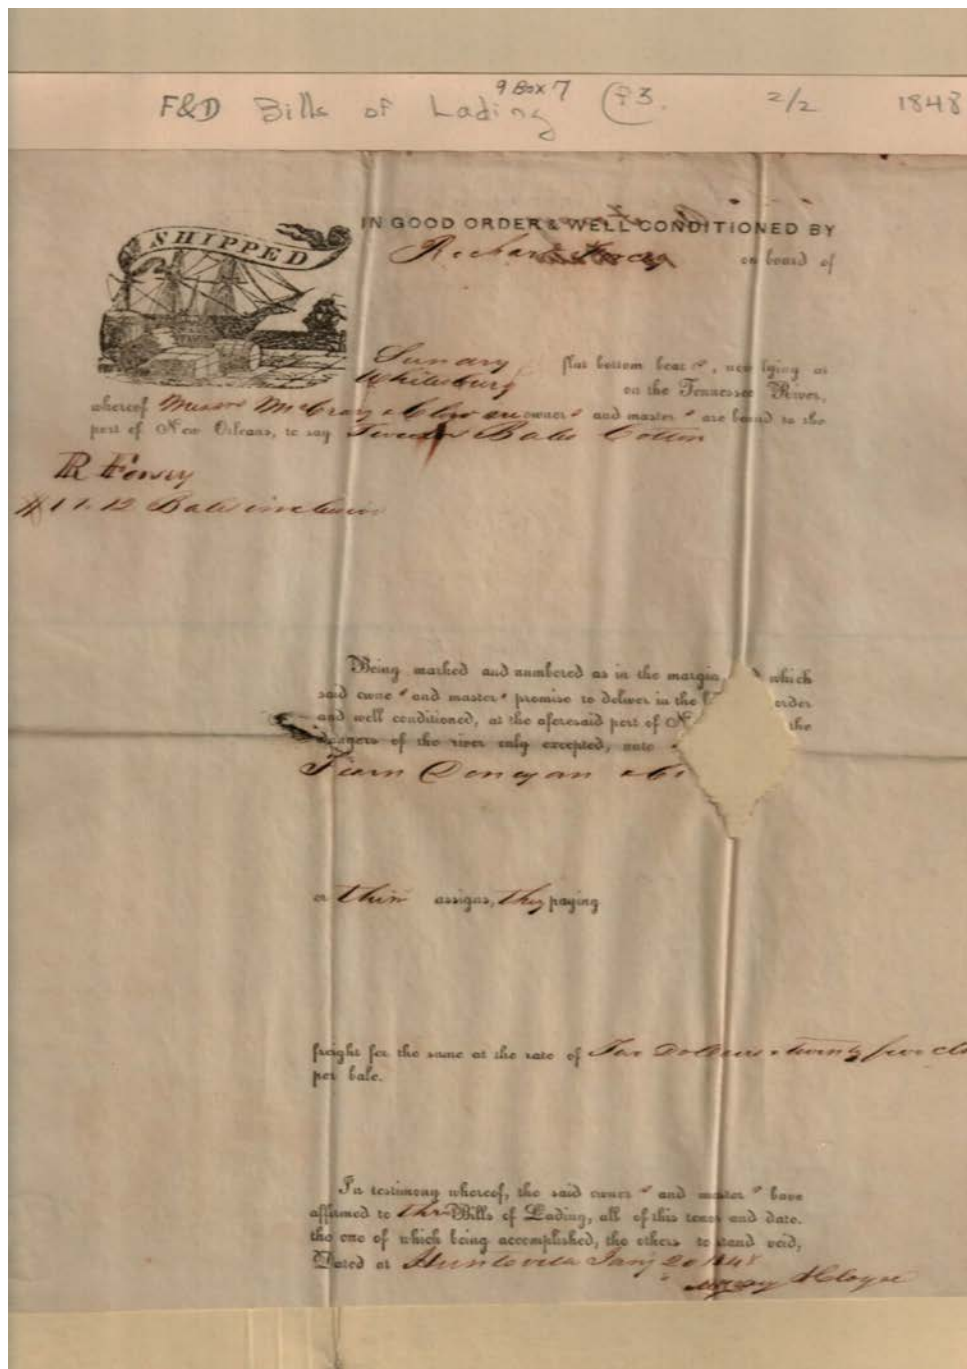 9 Box 7
F&D Bills of Lading F3. 2/2 1848
SHIPPED
IN GOOD ORDER & WELL CONDITIONED BY
Richard on board of
Sundry flat bottom boat s, now lying at
Whitesburg on the Tennessee River,
whereof Messrs McCray & owner s and master s are bound to the
port of New Orleans, to say Twelve Bales Cotton
R
# 1 1. 12 Bales inclusive
Being marked and numbered as in the margin, which
said owner s and master s promise to deliver in the order
and well conditioned, at the aforesaid port of N the
dangers of the river only excepted, unto
Fearn Donegan & Co
or their assigns, they paying
freight for the same at the rate of Two Dollars & twenty five cts
per bale.
In testimony whereof, the said owner s and master s have
affirmed to three Bills of Lading, all of this tenor and date.
the one of which being accomplished, the others to stand void,
Dated at Huntsville Jany 20 1848